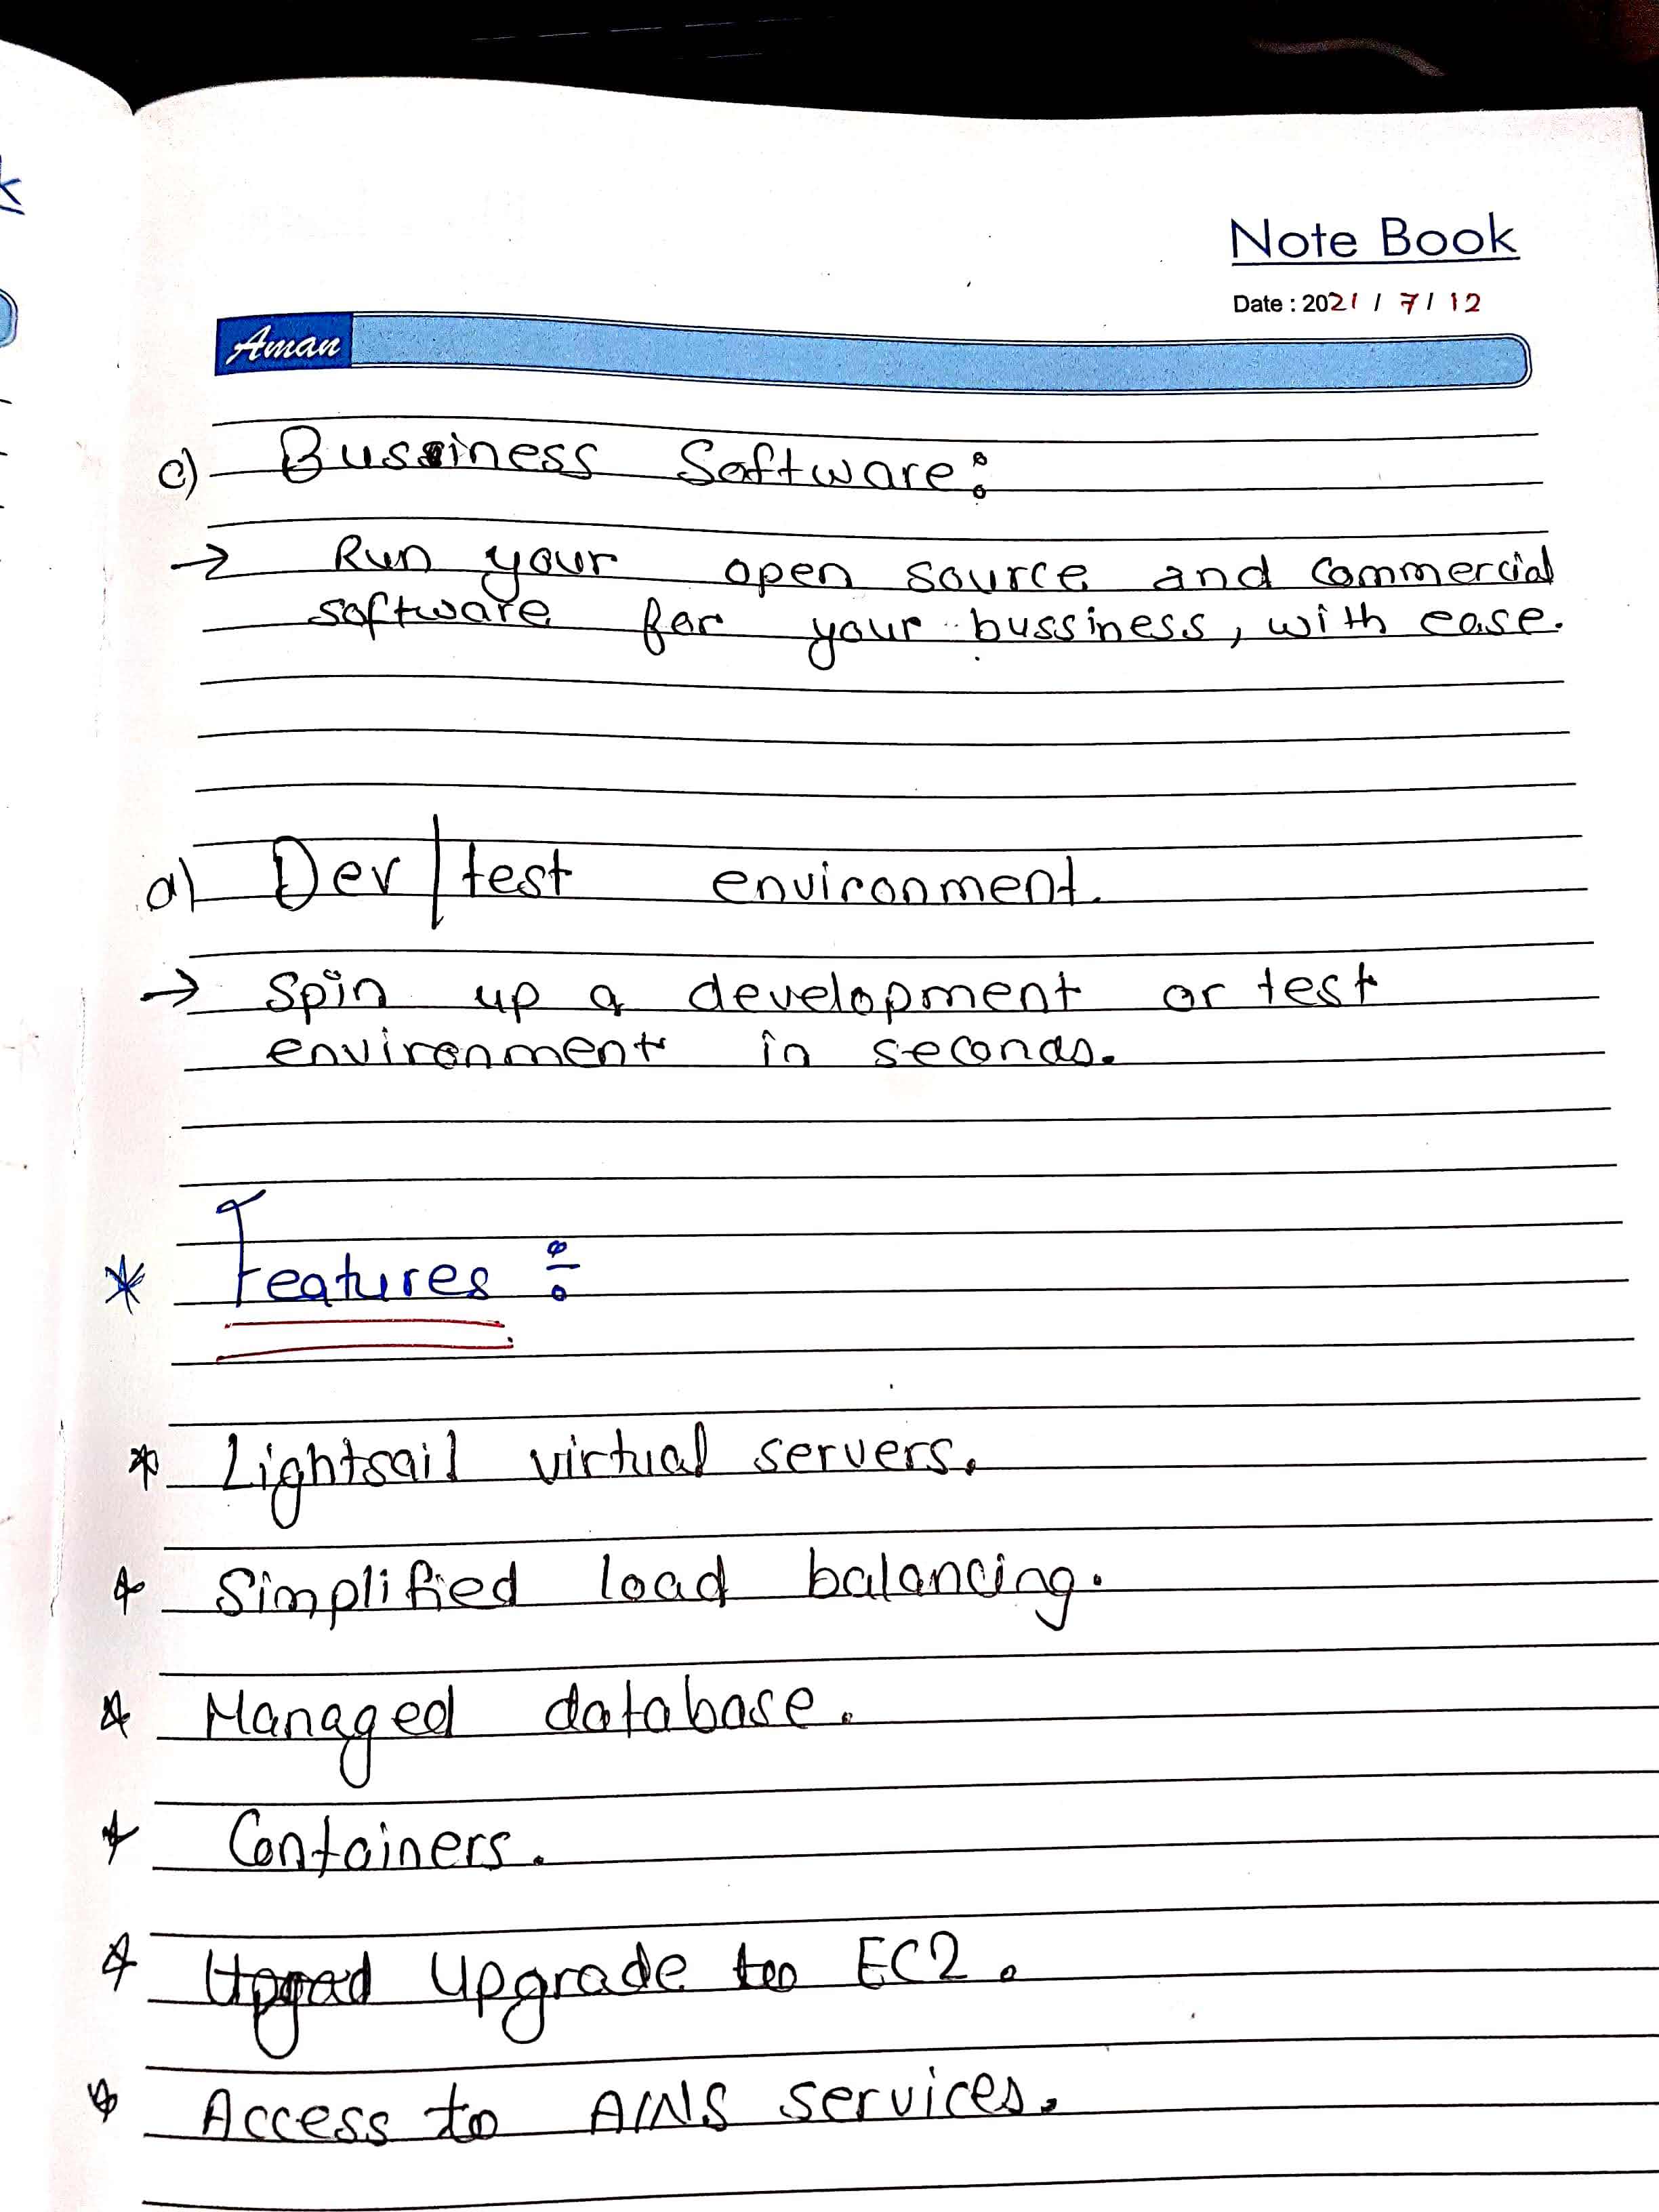 Note Book
Date : 2021 / 7 / 12
Aman
c) Bussiness Software:
→ Run your open source and commercial
software for your bussiness, with ease.
d) Dev/test environment.
→ Spin up a development or test
environment in seconds.
* Features :
* Lightsail virtual servers.
* Simplified load balancing.
* Managed database.
* Containers.
* Upgrade to EC2.
* Access to AWS services.